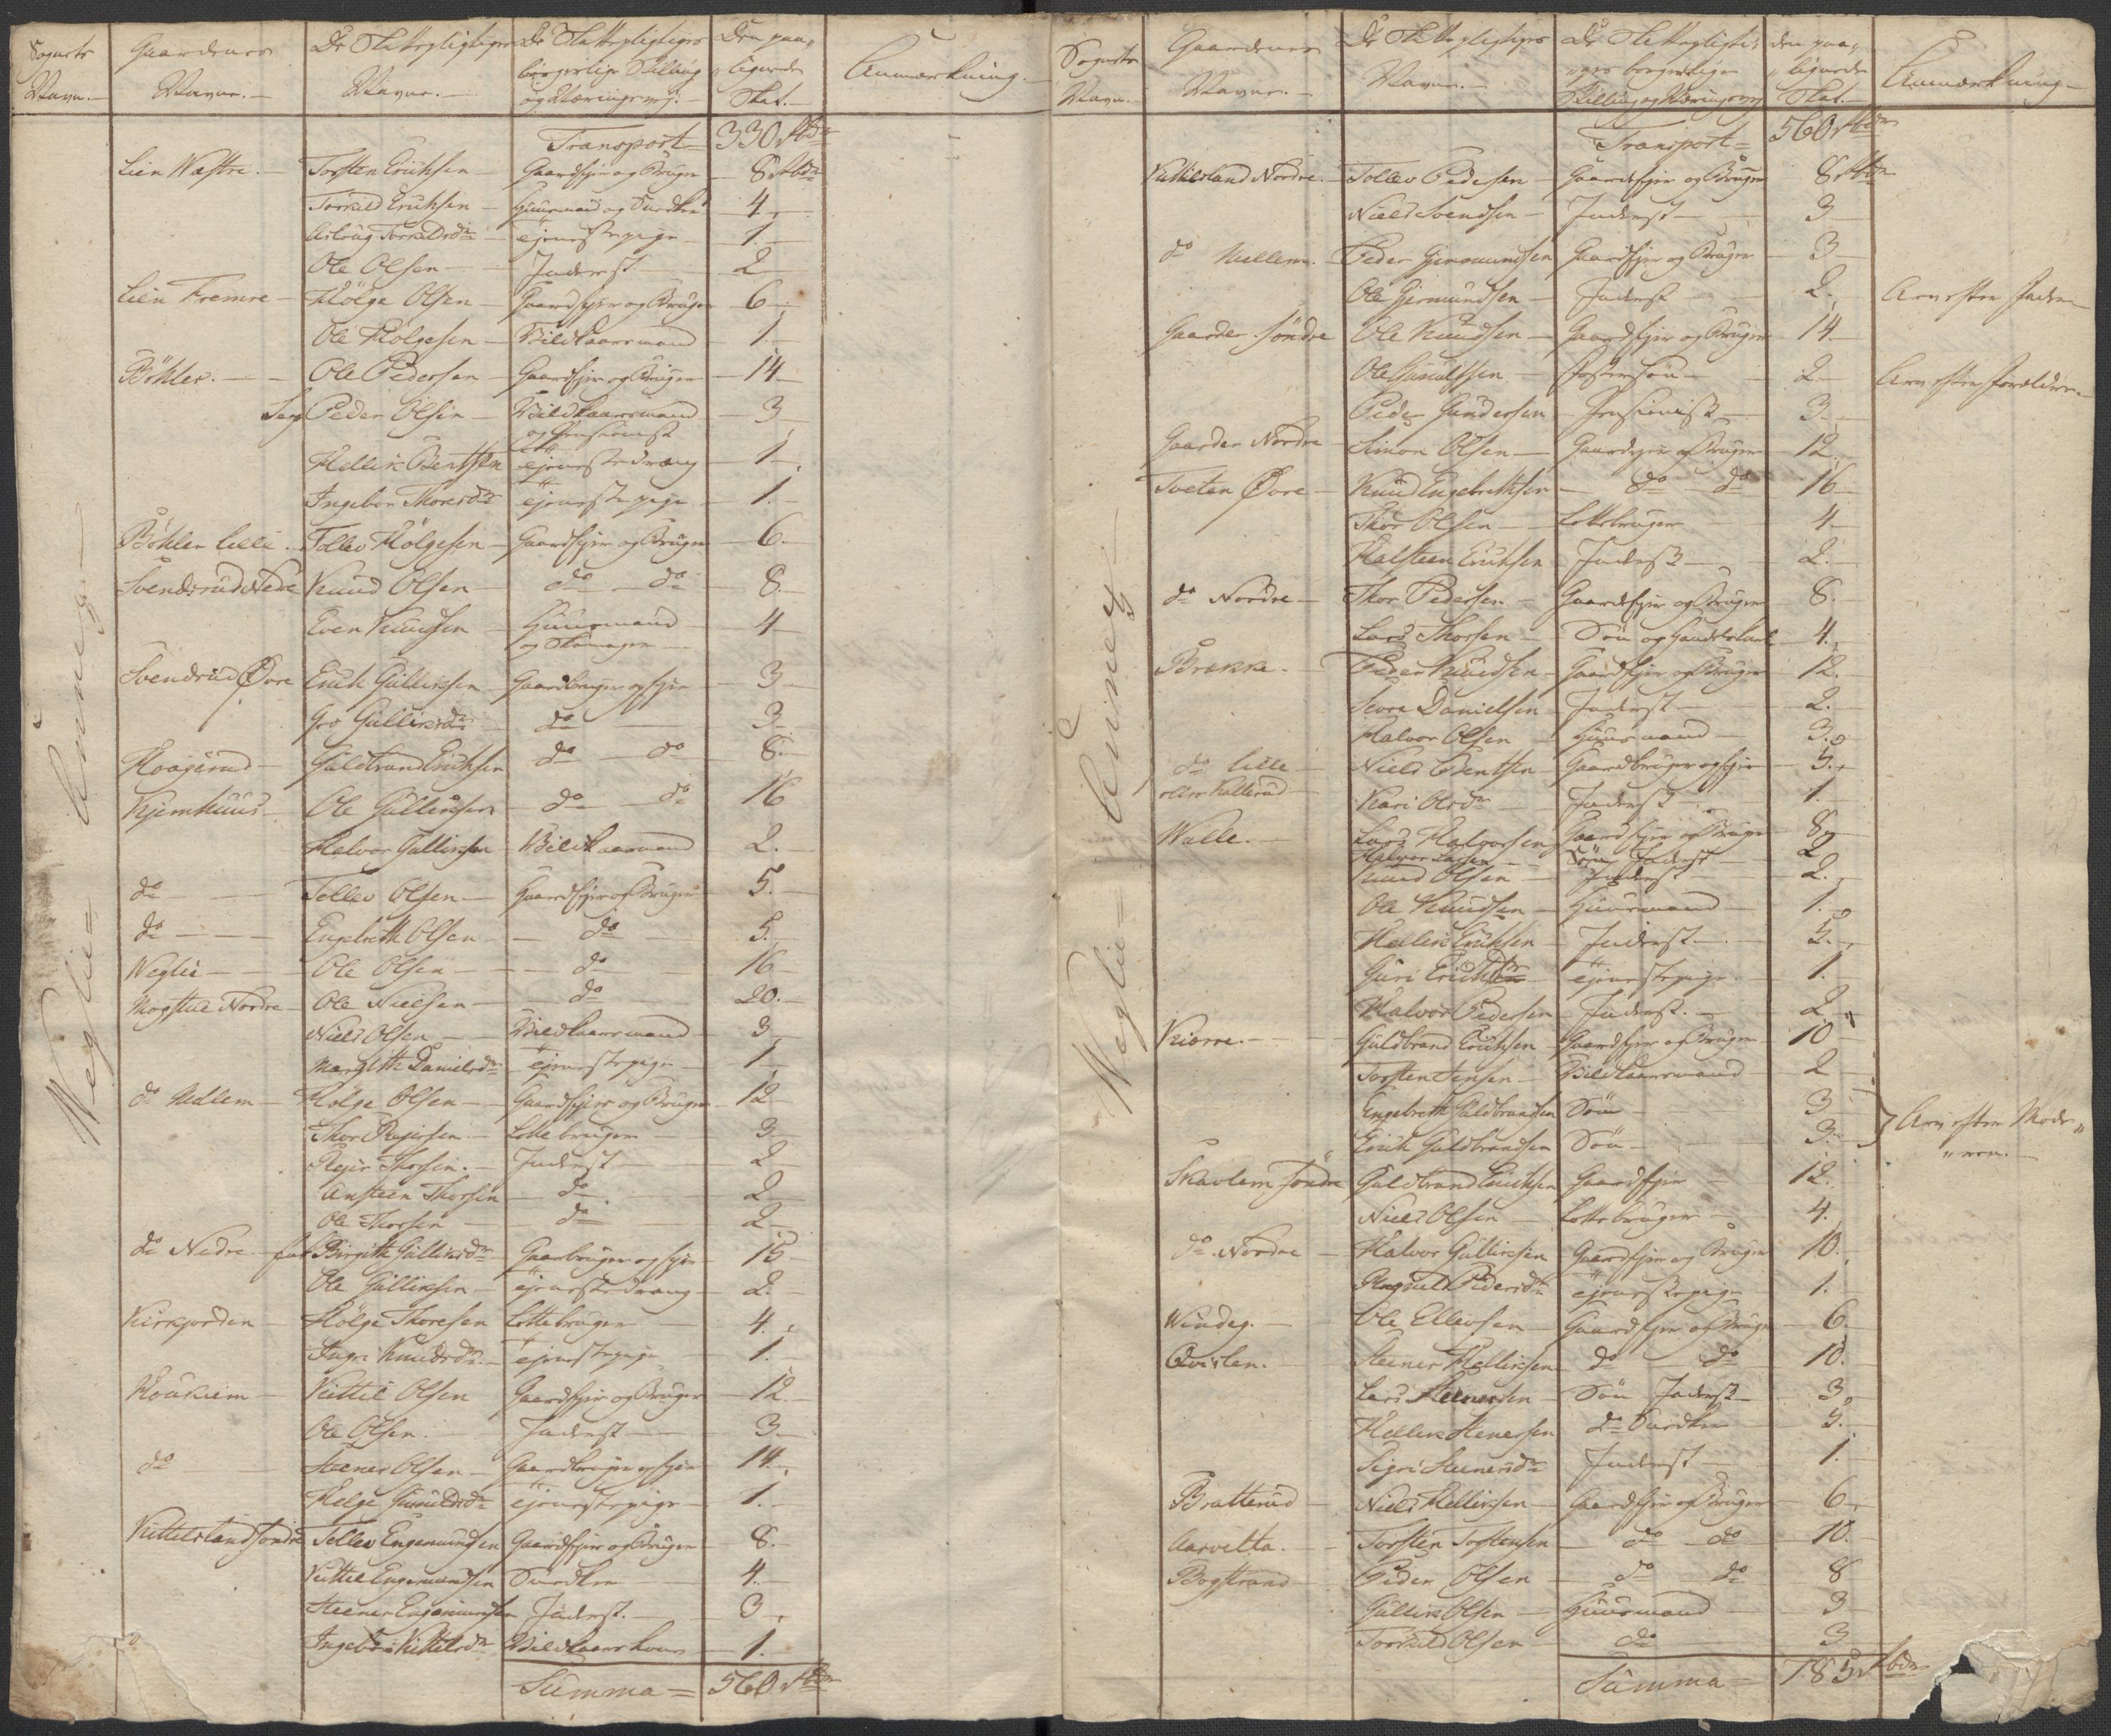 Sognets Navn.— Gaardenes Navne.— De Skattepligtiges Navne.— De Skattepligtiges borgerlige Stilling og Næringsvej.— Den paalignede Skat.— Anmærkning.—
Weglie = Annex
Transport = 330 Rbdr
Lien Wæstre.— Torsten Erichsen — Gaardejer og Bruger — 8 Rbdr
Torkild Erichsen — Huusmand og Snedker — 4
Aslaug Torkildsdr — ejeneste pige — 1.
Ole Olsen — Inderst — 2
Lien Fremre — Hölge Olsen — Gaardejer og Bruger 6
Ole Hölgesen — Vilkaarsmand — 1.
Böhler.— Ole Pedersen — Gaardejer og Bruger — 14
Peder Olsen — Vilkaarsmand og Pensionist — 3
Hellik Bentsen ejenestedreng — 1
Ingebor Thorsdr ejeneste pige — 1.
Böhler Lille.— Tollev Hölgesen — Gaardejer og Bruger — 6.
Svendsrud Nedre Knud Olsen — do — do — 8.
Even Knudsen — Huusmand og Skomager — 4
Svendrud Øvre Erich Gulliksen — Gaardbruger og ejer — 3
Gro Gulliksdr — do — 3
Haagerud — Guldbrand Erichsen do — do — 8.
Kjemhuus — Ole Gulliksen — do — do 16
Halvor Gulliksen — Vilkaarsmand 2.
do — Tollev Olsen — Gaardejer og Bruger 5.
do — Engebreth Olsen — do — 5.
Weglie — Ole Olsen — do — 16
Mogstue Nordre — Ole Nielsen — do — 20.
Niels Olsen — Vilkaarsmand — 3
Margith Danielsdr — ejenestepige — 1
do Mellem — Hölge Olsen — Gaardejer og Bruger — 12
Thor Rejersen.— Lottebruger — 3
Rejer Thorsen.— Inderst — 2
Ansteen Thorsen — do — 2
Ole Thorsen — do — 2
do Nedre — Birgith Gulliksdr — Gaardbruger og ejer — 15
Ole Gulliksen — ejenestedreng — 2.
Kirkjorden — Hölge Thoresen Lottebruger — 4.
Ingri Knudsdr.— ejenestepige 1.
Houkiem — Kittil Olsen Gaardejer og Bruger — 12
Ole Olsen.— Inderst — 3.
do — Steener Olsen — Gaardbruger og ejer — 14.
Helge Gunuldsdr ejenestepige — 1.
Kittilsland söndre Tollev Engemundsen Gaardejer og Bruger — 8.
Kittil Engemundsen Snedker — 4.
Steener Engemundsen Inderst.— 3
Ingebor Kittilsdr Vilkaarskone — 1.
Summa = 560 Rbdr
Sognets Navn.— Gaardenes Navne.— De Skattepligtiges Navne.— De Skattepligtiges borgerlige Stilling og Næringsvej Den paalignede Skat.— Anmærkning —
Weglie = Annex
Transport = 560 Rbdr
Kittilsland Nordre.— Tollev Pedersen — Gaardejer og Bruger 8 Rbdr
Niels Svendsen — Inderst — 3
do Mellem.— Peder Gjermundsen Gaardejer og Bruger — 3
Ole Gjermundsen — Inderst — 2. Arv efter Faderen
Gaarder söndre Ole Knudsen — Gaardejer og Bruger 14
Ole Gunulfsen — Fostersön — 2 Arv efter Forældrene
Peder Gundersen — Pensionist — 3
Gaarder Nordre — Simon Olsen — Gaardejer og Bruger 12
Tveten Øvre — Knud Engebrethsen — do — do 16
Thor Olsen — Lottebruger — 4
Halsteen Erichsen — Inderst — 2.
do Nordre — Thor Pedersen — Gaardejer og Bruger 8.
Lars Thorsen — Sön og Handelskarl — 4.
Brekke.— Peder Knudsen — Gaardejer og Bruger — 12.
Tore Danielsen — Inderst — 2.
Halvor Olsen — Huusmand — 3.
do Lille eller Kallerud Niels Bentsen — Gaardbruger og ejer — 5.
Kari Olsdr — Inderst — 1.
Walle.— Lars Halvorsen Gaardejer og Bruger 8
Halvor Larsen — Sön Inderst — 2
Knud Olsen — Inderst — 2.
Ole Knudsen — Huusmand — 1.
Hellik Erichsen — Inderst — 5.
Guri Erichsdr — ejenestepige — 1.
Halvor Pedersen — Inderst.— 2
Kiørre.— Guldbrand Erichsen — Gaardejer og Bruger — 10
Torsten Jensen — Vilkaarsmand — 2
Engebreth Guldbrandsen Sön — 3
Erich Guldbrandsen Sön — 3. } Arv efter Moderen.—
Skavlem söndre Guldbrand Erichsen Gaardejer — 12.
Niels Olsen — Lottebruger — 4.
do Nordre — Halvor Gulliksen Gaardejer og Bruger 10.
Ragnild Pedersdr ejenestepige — 1.
Windeg.— Ole Ellevsen — Gaardejer og Bruger — 6.
Qvislen.— Steener Helliksen — do — do 10.
Lars Steenersen — Sön Inderst — 3
Hellik Stenersen do Snedker — 5.
Sigri Steenersdr Inderst — 1.
Bratterud — Niels Helliksen — Gaardejer og Bruger — 6
Aasvelta.— Torsten Torstensen — do — do — 10.
Bogstrand — Peder Olsen — do — do 8
Gullik Olsen — Huusmand — 3
Torkild Olsen — do — 3
Summa = 785 Rbdr